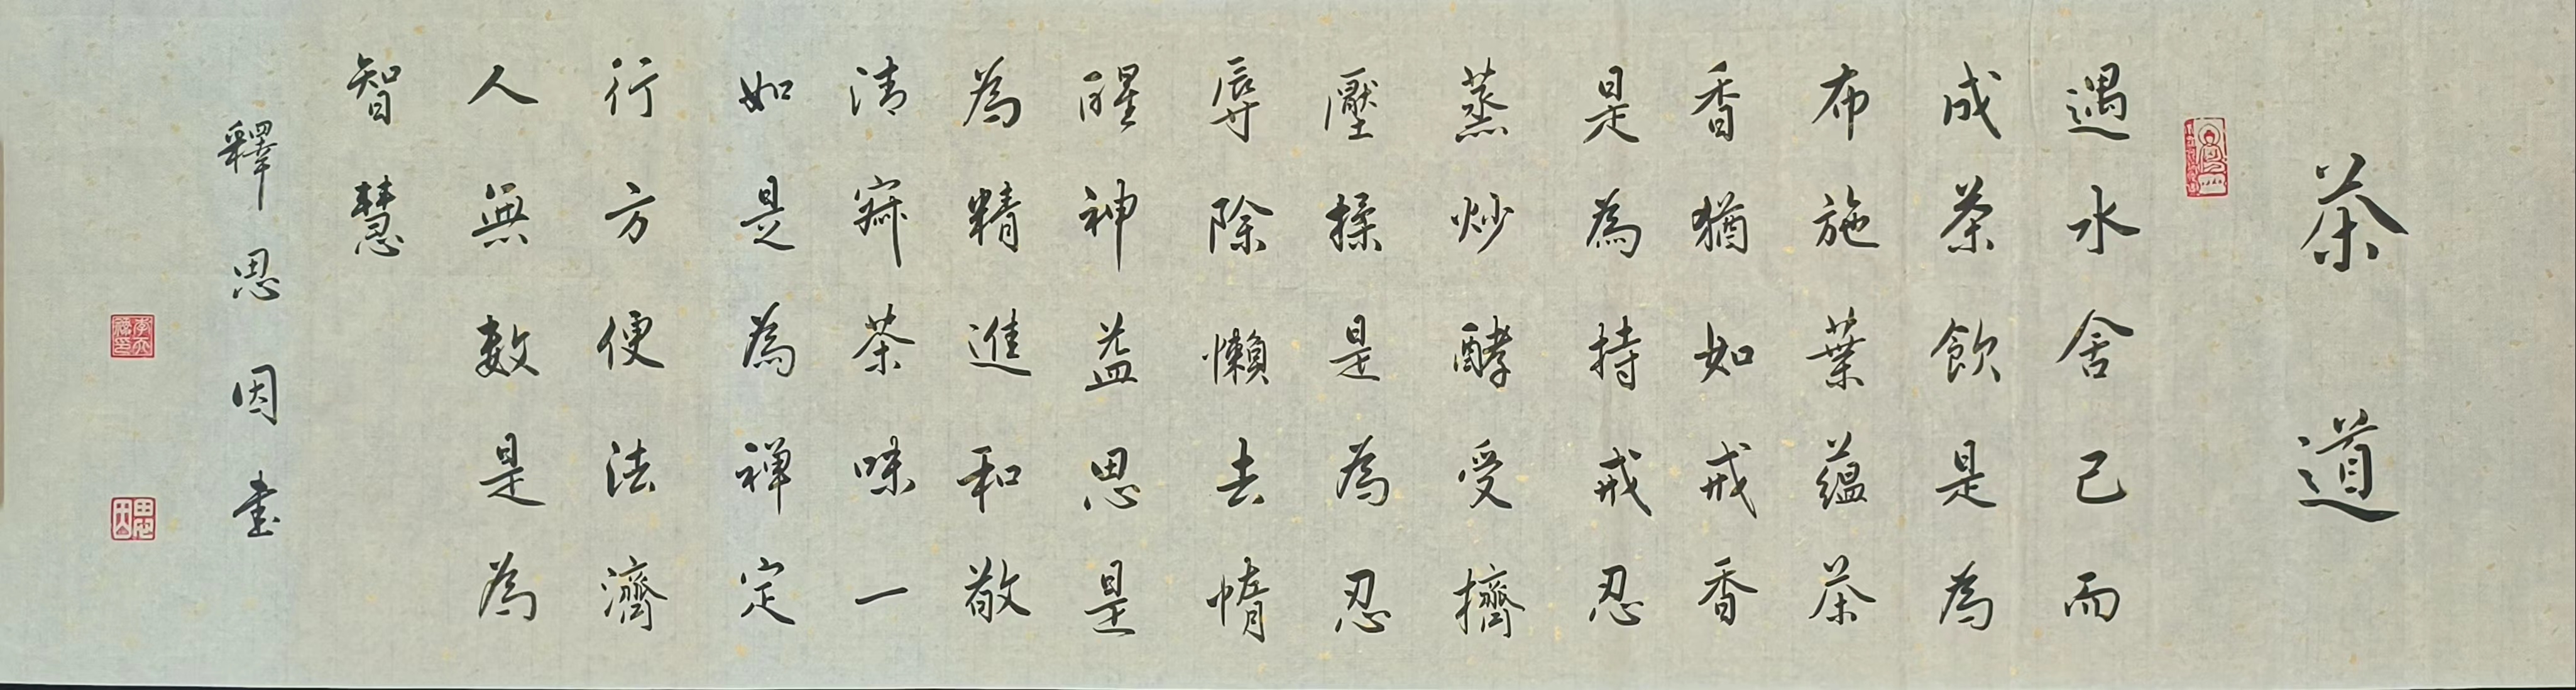 茶道
遇水舍己而
成茶飲是為
布施葉蘊茶
香猶如戒香
是為持戒忍
蒸炒酵受擠
壓揉是為忍
辱除懶去惰
醒神益思是
為精進和敬
清寂茶味一
如是為禅定
行方便法濟
人無数是為
智慧
釋思因書